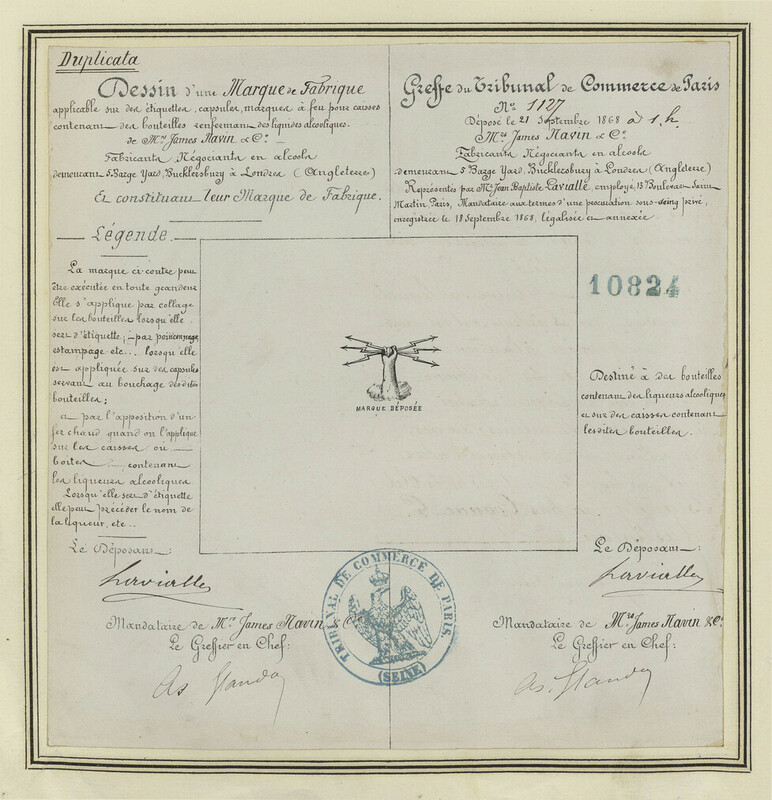 Duplicata
Dessin d'une Marque de Fabrique
applicable sur des étiquettes, capsules, marques à feu pour caisses
contenant des bouteilles renfermant des liquides alcooliques.
de Mrs James Navin & Co.
Fabricants, Négociants en alcools
demeurant 5 Barge Yard, Bucklersbury à Londres (Angleterre)
Et constituant leur Marque de Fabrique.
Greffe du Tribunal de Commerce de Paris
No. 1127
Déposé le 21 Septembre 1868 à 1. h.
Mrs James Navin & Co.
Fabricants Négociants en alcools
demeurant 5 Barge Yard, Bucklersbury à Londres (Angleterre)
Représentés par Mr Jean Baptiste Lavialle, employé, 13 Boulevart Saint
Martin Paris, Mandataire aux termes d'une procuration sous-seing privé,
enregistrée le 18 Septembre 1868, légalisée et annexée
Légende.
La marque ci-contre peut
être exécutée en toute grandeur
Elle s'applique par collage
sur les bouteilles lorsqu'elle
sert d'étiquette; par poinçonnage,
estampage etc... lorsqu'elle
est appliquée sur des capsules
servant au bouchage des dites
bouteilles;
et par l'apposition d'un
fer chaud quand on l'applique
sur les caisses ou
boites contenant
les liqueurs alcooliques.
Lorsqu'elle sert d'étiquette
elle peut précéder le nom de
la liqueur, etc...
MARQUE DÉPOSÉE
10824
Destiné à des bouteilles
contenant des liqueurs alcooliques
et sur des caisses contenant
les dites bouteilles.
Le Déposant:
Lavialle
Mandataire de Mrs James Navin & Co
Le Greffier en Chef:
TRIBUNAL DE COMMERCE DE PARIS.
(SEINE)
Le Déposant:
Lavialle
Mandataire de Mrs James Navin & Co.
Le Greffier en Chef: